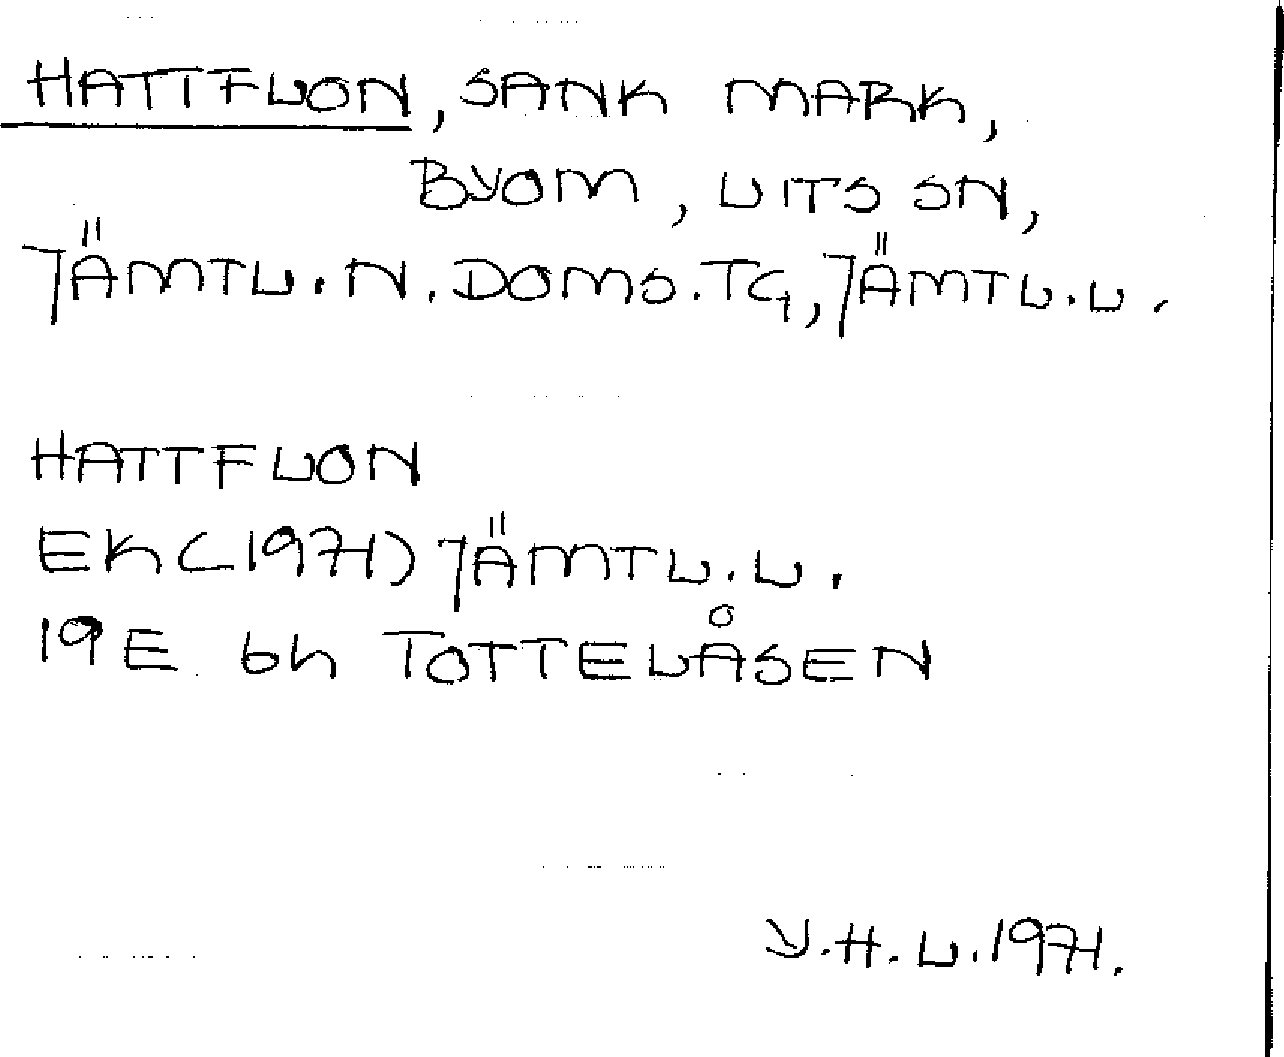 HATTFLON, SANK MARK,
BYOM, LITS SN,
JÄMTL. N. DOMS. TG, JÄMTL. L.
HATTFLON
EK (1971) JÄMTL. L.
19E 6h TOTTELÅSEN
Y. H. L. 1971.